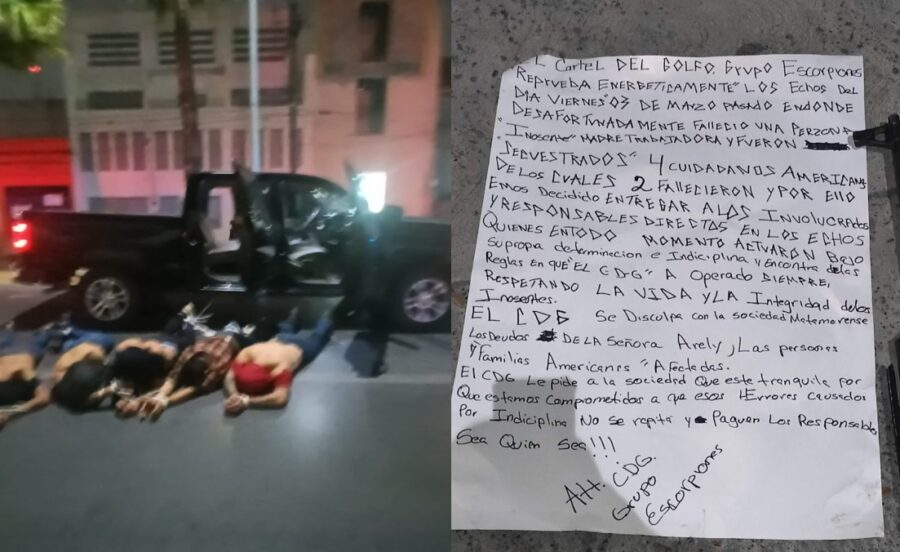 El Cartel DEL GOLFO. Grupo Escorpiones
REPRUEBA ENERGETICAMENTE" LOS Echos DEL
DIA VIERNES" 03 DE MARZO PASADO ENDONDE
DESAFORTUNADAMENTE FALLECIO UNA PERZONA
"INOSENTE" MADRE TRABAJADORA Y FUERON
SECUESTRADOS" 4 CUIDADANOS AMERICANOS
DE LOS CUALES 2 FALLECIERON Y POR EllO
EMOS DECIDIDO ENTREGAR A LOS INVOLUCRADOS
Y RESPONSABLES DIRECTOS EN LOS ECHOS
QUIENES ENTODO MOMENTO ACTUARON BAJO
SU propia determinacion e Indiciplina y Encontra de las
Reglas En que "EL CDG" A Operado SIEMPRE,
RESPETANDO LA VIDA Y LA Integridad de los
Inosentes.
EL CDG Se Disculpa con la sociedad Matamorense
Los Deudos DE LA SEÑORA Arely, Las personas
y "Familias Americanas "Afectadas.
El CDG Le pide a la sociedad Que este tranquila por
Que estamos comprometidos a que esos "Errores causados
Por Indiciplina No se repita y Paguen Los Responsables
Sea Quien Sea!!!
Att. CDG.
Grupo
Escorpiones